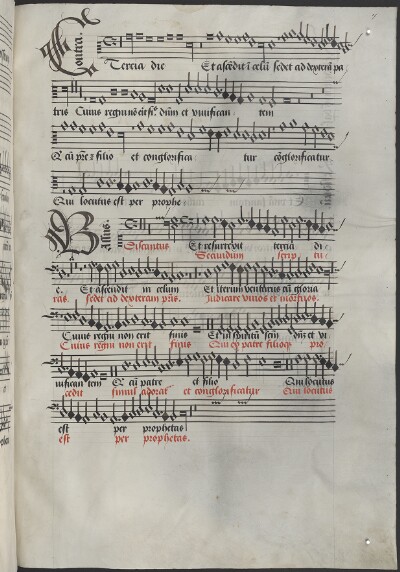 Contra.
Tercia die Et ascēdit ī celū sedet ad dexterā pa
tris Cuius regni nō erit fi⁹ dn̄m et viuifican tem
Q cū pr̄e ⁊ filio et conglorifica tur cōglorificatur
Qui locutus est per prophe
Bassus.
Et resurrexit tercia di
Secundum scrip tu
e. Et ascendit in celum Et iterum venturus cū gloria
ras. sedet ad dexteram pr̄is. Judicare viuos et mortuos.
Cuius regni non erit finis Et in spiritū scm̄ dn̄m et vi
Cuius regni non erit finis Qui ex patre filioq; pro
uifican tem Q cū patre et filio Qui locutus
cedit simul adorat et conglorificatur Qui locutus
est per prophetas
est per prophetas.